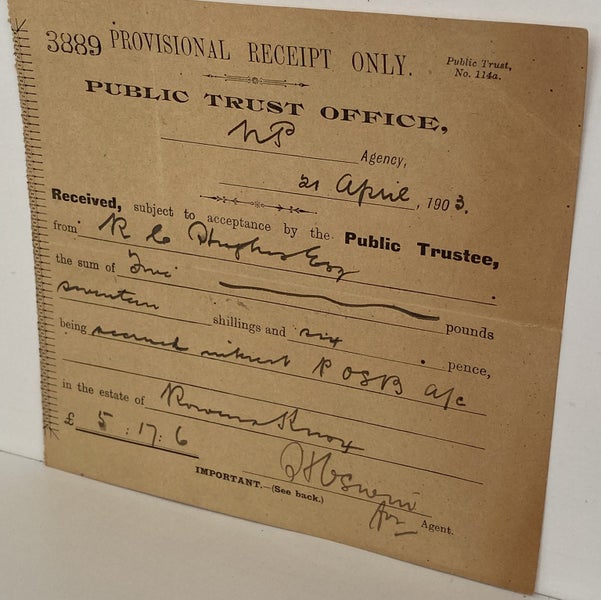 3889 PROVISIONAL RECEIPT ONLY.
Public Trust,
No. 114a.
PUBLIC TRUST OFFICE,
NP Agency,
21 April, 1903.
Received, subject to acceptance by the Public Trustee,
from R C Hughes Esq
the sum of Five pounds
seventeen shillings and six pence,
being accrued interest P O S B a/c
in the estate of Rowena Knox
£ 5 : 17 : 6
for Agent.
IMPORTANT.—(See back.)